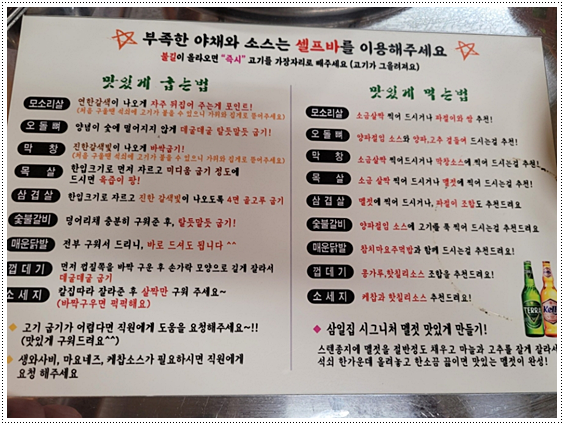 부족한 야채와 소스는 셀프바를 이용해주세요
불길이 올라오면 "즉시" 고기를 가장자리로 빼주세요 (고기가 그을려져요)
맛있게 굽는법
모소리살 연한갈색이 나오게 자주 뒤집어 주는게 포인트!
(처음 구울땐 석쇠에 고기가 붙을 수 있으니 가위와 집게로 뜯어주세요)
오돌뼈 양념이 숯에 떨어지지 않게 데굴데굴 탈듯말듯 굽기!
막창 진한갈색빛이 나오게 바싹굽기!
(처음 구울땐 석쇠에 고기가 붙을 수 있으니 가위와 집게로 뜯어주세요)
목살 한입크기로 먼저 자르고 미디움 굽기 정도에
드시면 육즙이 팡!
삼겹살 한입크기로 자르고 진한 갈색빛이 나도록 4면 골고루 굽기
숯불갈비 덩어리채 충분히 구워준 후, 탈듯말듯 굽기!
매운닭발 전부 구워서 드리니, 바로 드셔도 됩니다 ^^
껍데기 먼저 껍질쪽을 바짝 구운 후 손가락 모양으로 길게 잘라서
데굴데굴 굽기
소세지 칼집따라 잘라준 후 살짝만 구워 주세요~
(바짝구우면 퍽퍽해요)
고기 굽기가 어렵다면 직원에게 도움을 요청해주세요~!!
(맛있게 구워드려요^^)
생와사비, 마요네즈, 케찹소스가 필요하시면 직원에게
요청 해주세요
맛있게 먹는법
모소리살 소금살짝 찍어 드시거나 파절이와 쌈 추천!
오돌뼈 양파절임 소스와 양파,고추 곁들여 드시는걸 추천!
막창 소금살짝 찍어 드시거나 막장소스에 찍어 드시는걸 추천!
목살 소금 살짝 찍어 드시거나 멜젓에 찍어 드시는걸 추천!
삼겹살 멜젓에 찍어 드시거나, 파절이 조합도 추천드려요
숯불갈비 양파절임 소스에 고기를 푹 찍어 드시는걸 추천드려요!
매운닭발 참치마요주먹밥과 함께 드시는걸 추천드려요!
껍데기 콩가루,핫칠리소스 조합을 추천드려요!
소세지 케찹과 핫칠리소스 추천드려요!
삼일집 시그니처 멜젓 맛있게 만들기!
스텐종지에 멜젓을 절반정도 채우고 마늘과 고추를 잘게 잘라서
석쇠 한가운데 올려놓고 한소끔 끓이면 맛있는 멜젓이 완성!
TERRA
Kelly